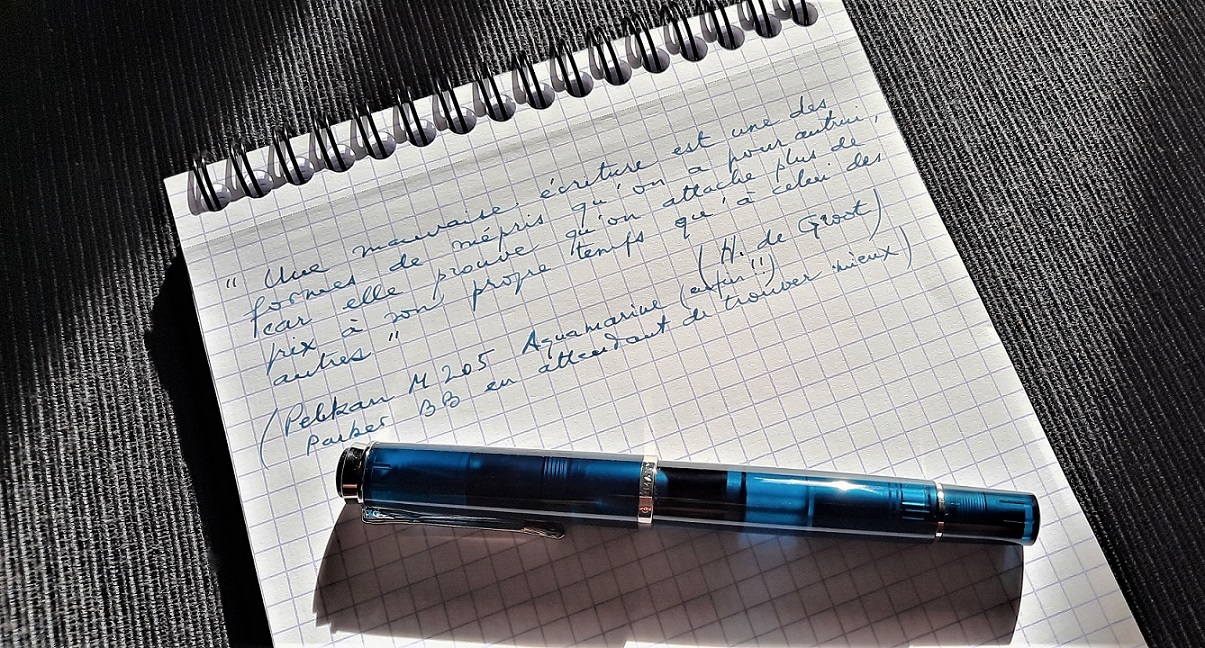 " Une mauvaise écriture est une des
formes de mépris qu'on a pour autrui,
car elle prouve qu'on attache plus de
prix à son propre temps qu'à celui des
autres "
(H. de Groot)
(Pelikan M 205 Aquamarine (enfin !!)
Parker BB en attendant de trouver mieux)